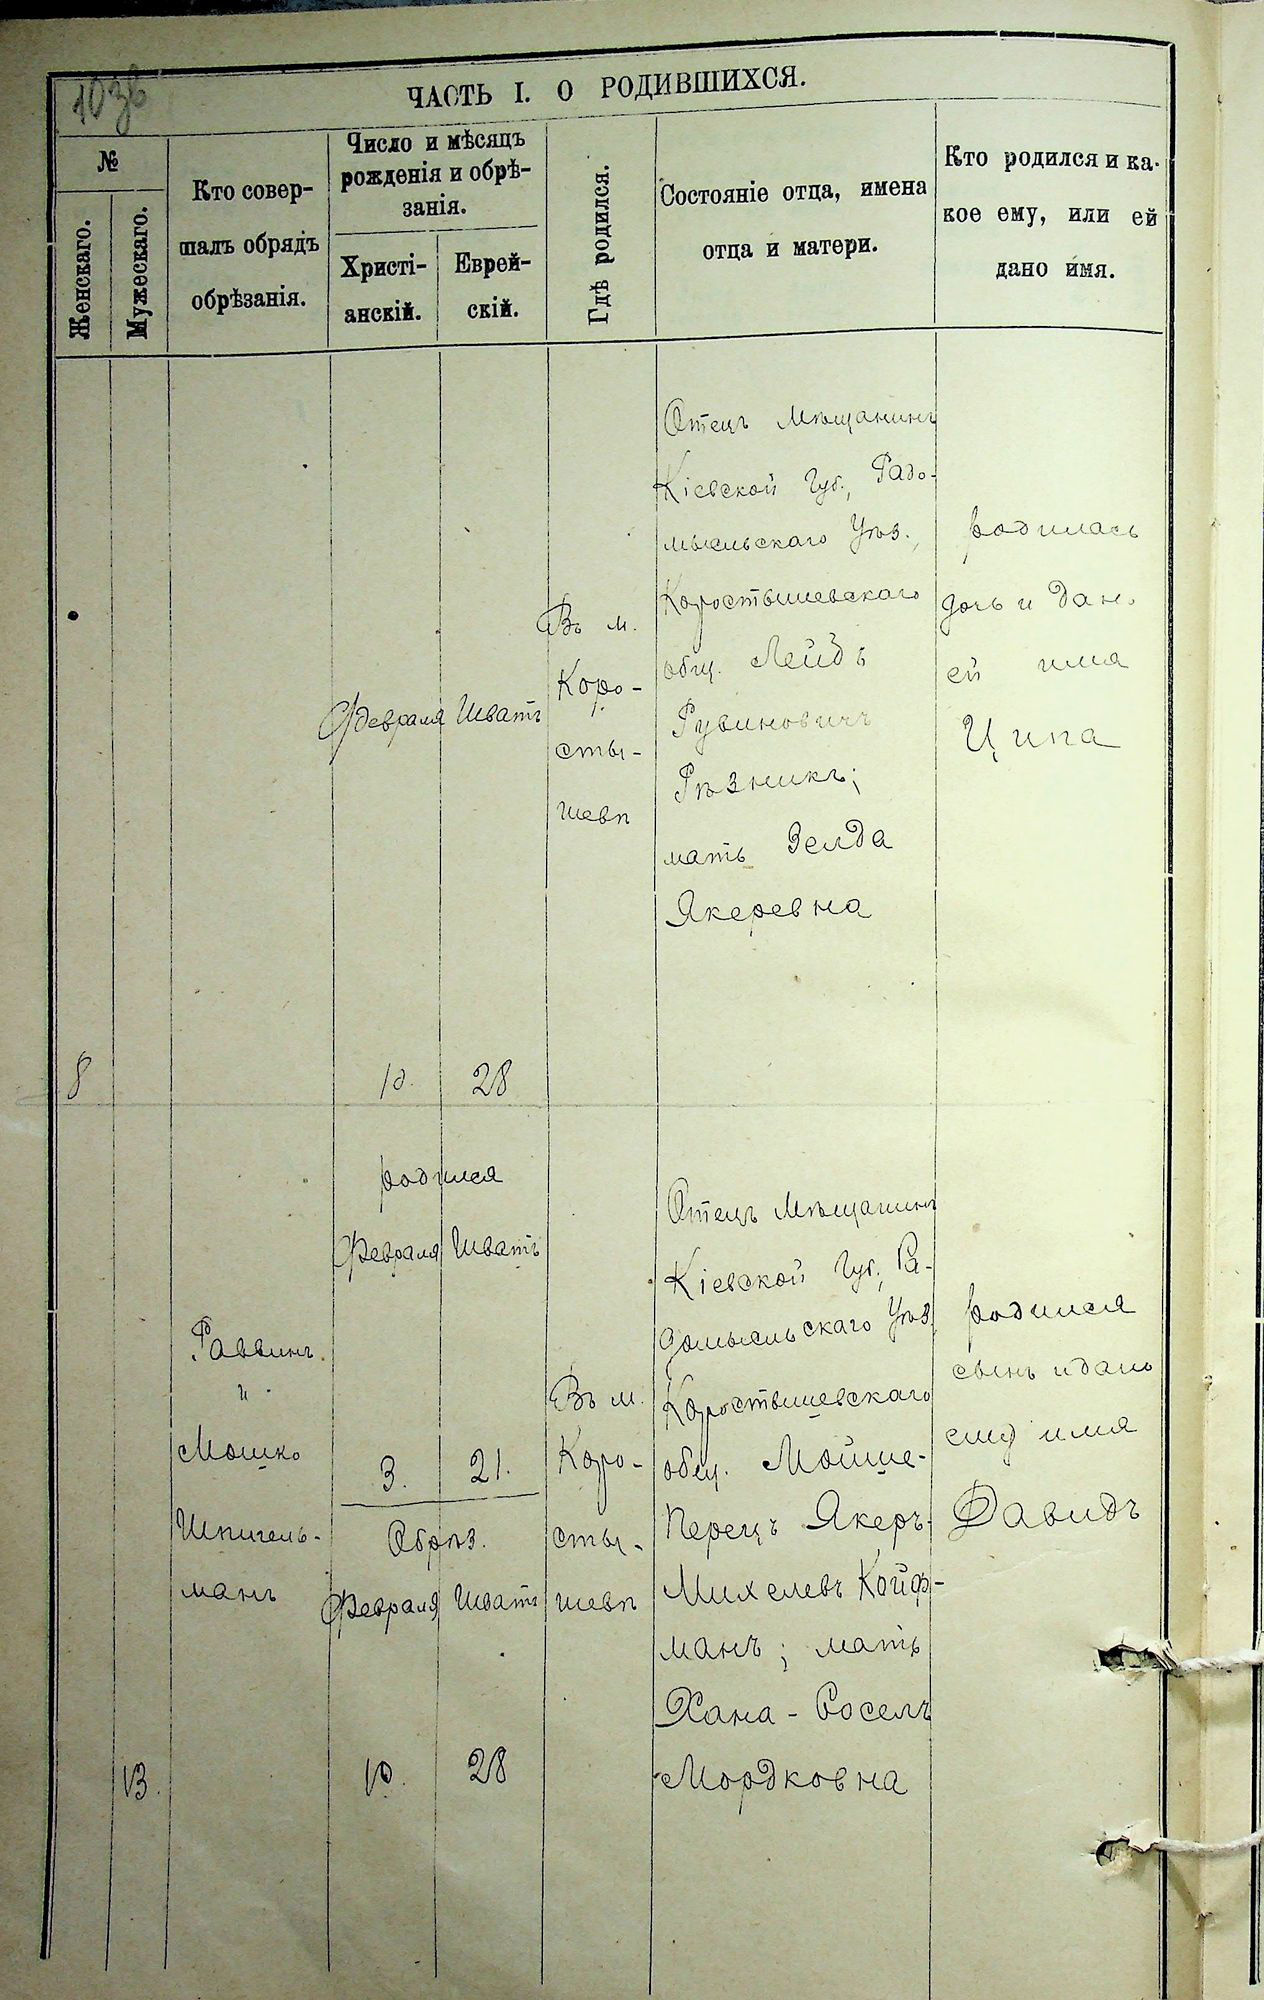 103б
ЧАСТЬ I. О РОДИВШИХСЯ.
№
Женскаго.
Мужескаго.
Кто совер-
шалъ обрядъ
обрѣзанія.
Число и мѣсяцъ
рожденія и обрѣ-
занія.
Христі-
анскій.
Еврей-
скій.
Гдѣ родился.
Состояніе отца, имена
отца и матери.
Кто родился и ка-
кое ему, или ей
дано имя.
8
Февраля
10.
Шватъ
28
Въ м.
Коро-
сты-
шевѣ
Отецъ Мѣщанинъ
Кіевской Губ., Радо-
мысльскаго Уѣз.,
Коростышевскаго
общ. Лейдъ
Рувиновичъ
Рѣзникъ;
мать Зелда
Якеревна
родилась
дочь и дан.
ей имя
Ципа
13.
Раввинъ
и
Мошко
Шпигель-
манъ
родился
Февраля
3.
Шватъ
21.
Обрѣз.
Февраля
10.
Шватъ
28
Въ м.
Коро-
сты-
шевѣ
Отецъ Мѣщанинъ
Кіевской Губ., Ра-
домысльскаго Уѣз.
Коростышевскаго
общ. Мойше-
Перецъ Якеръ-
Михелевъ Койф-
манъ; мать
Хана-Роселъ
Мордковна
родился
сынъ и дано
ему имя
Давидъ